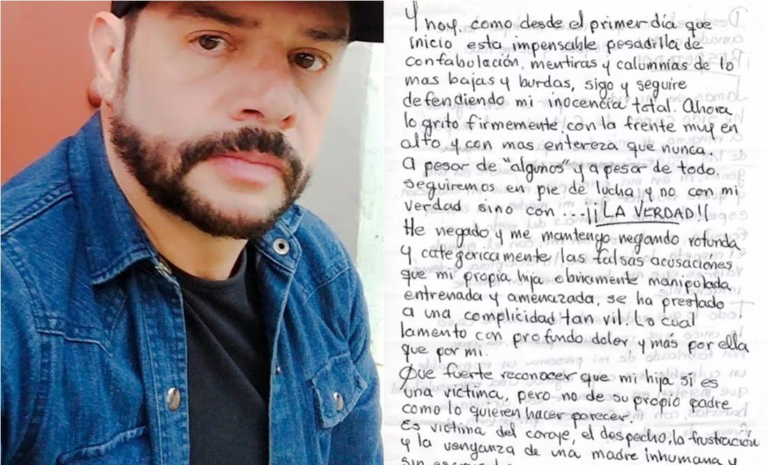 Y hoy, como desde el primer día que
inicio esta impensable pesadilla de
confabulación, mentiras y calumnias de lo
mas bajas y burdas, sigo y seguire
defendiendo mi inocencia total. Ahora
lo grito firmemente, con la frente muy en
alto y con mas entereza que nunca.
A pesar de "algunos" y a pesar de todo,
seguiremos en pie de lucha y no con mi
verdad sino con ...¡¡LA VERDAD!!
He negado y me mantengo negando rotunda
y categóricamente, las falsas acusaciones
que mi propia hija obviamente manipulada,
entrenada y amenazada, se ha prestado
a una complicidad tan vil. Lo cual
lamento con profundo dolor y más por ella
que por mi.
Que fuerte reconocer que mi hija si es
una víctima, pero no de su propio padre
como lo quieren hacer parecer.
Es victima del coraje, el despecho, la frustración
y la venganza de una madre inhumana y